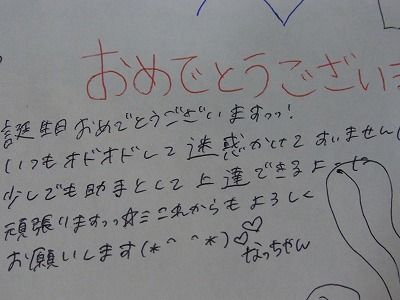 おめでとうございま
誕生日おめでとうございますっっ!
いつもオドオドして迷惑かけてすいません(
少しでも助手として上達できるよーに
頑張りますっっ☆ミこれからもよろしく
お願いします(*^^*)♡♡
なっちゃん